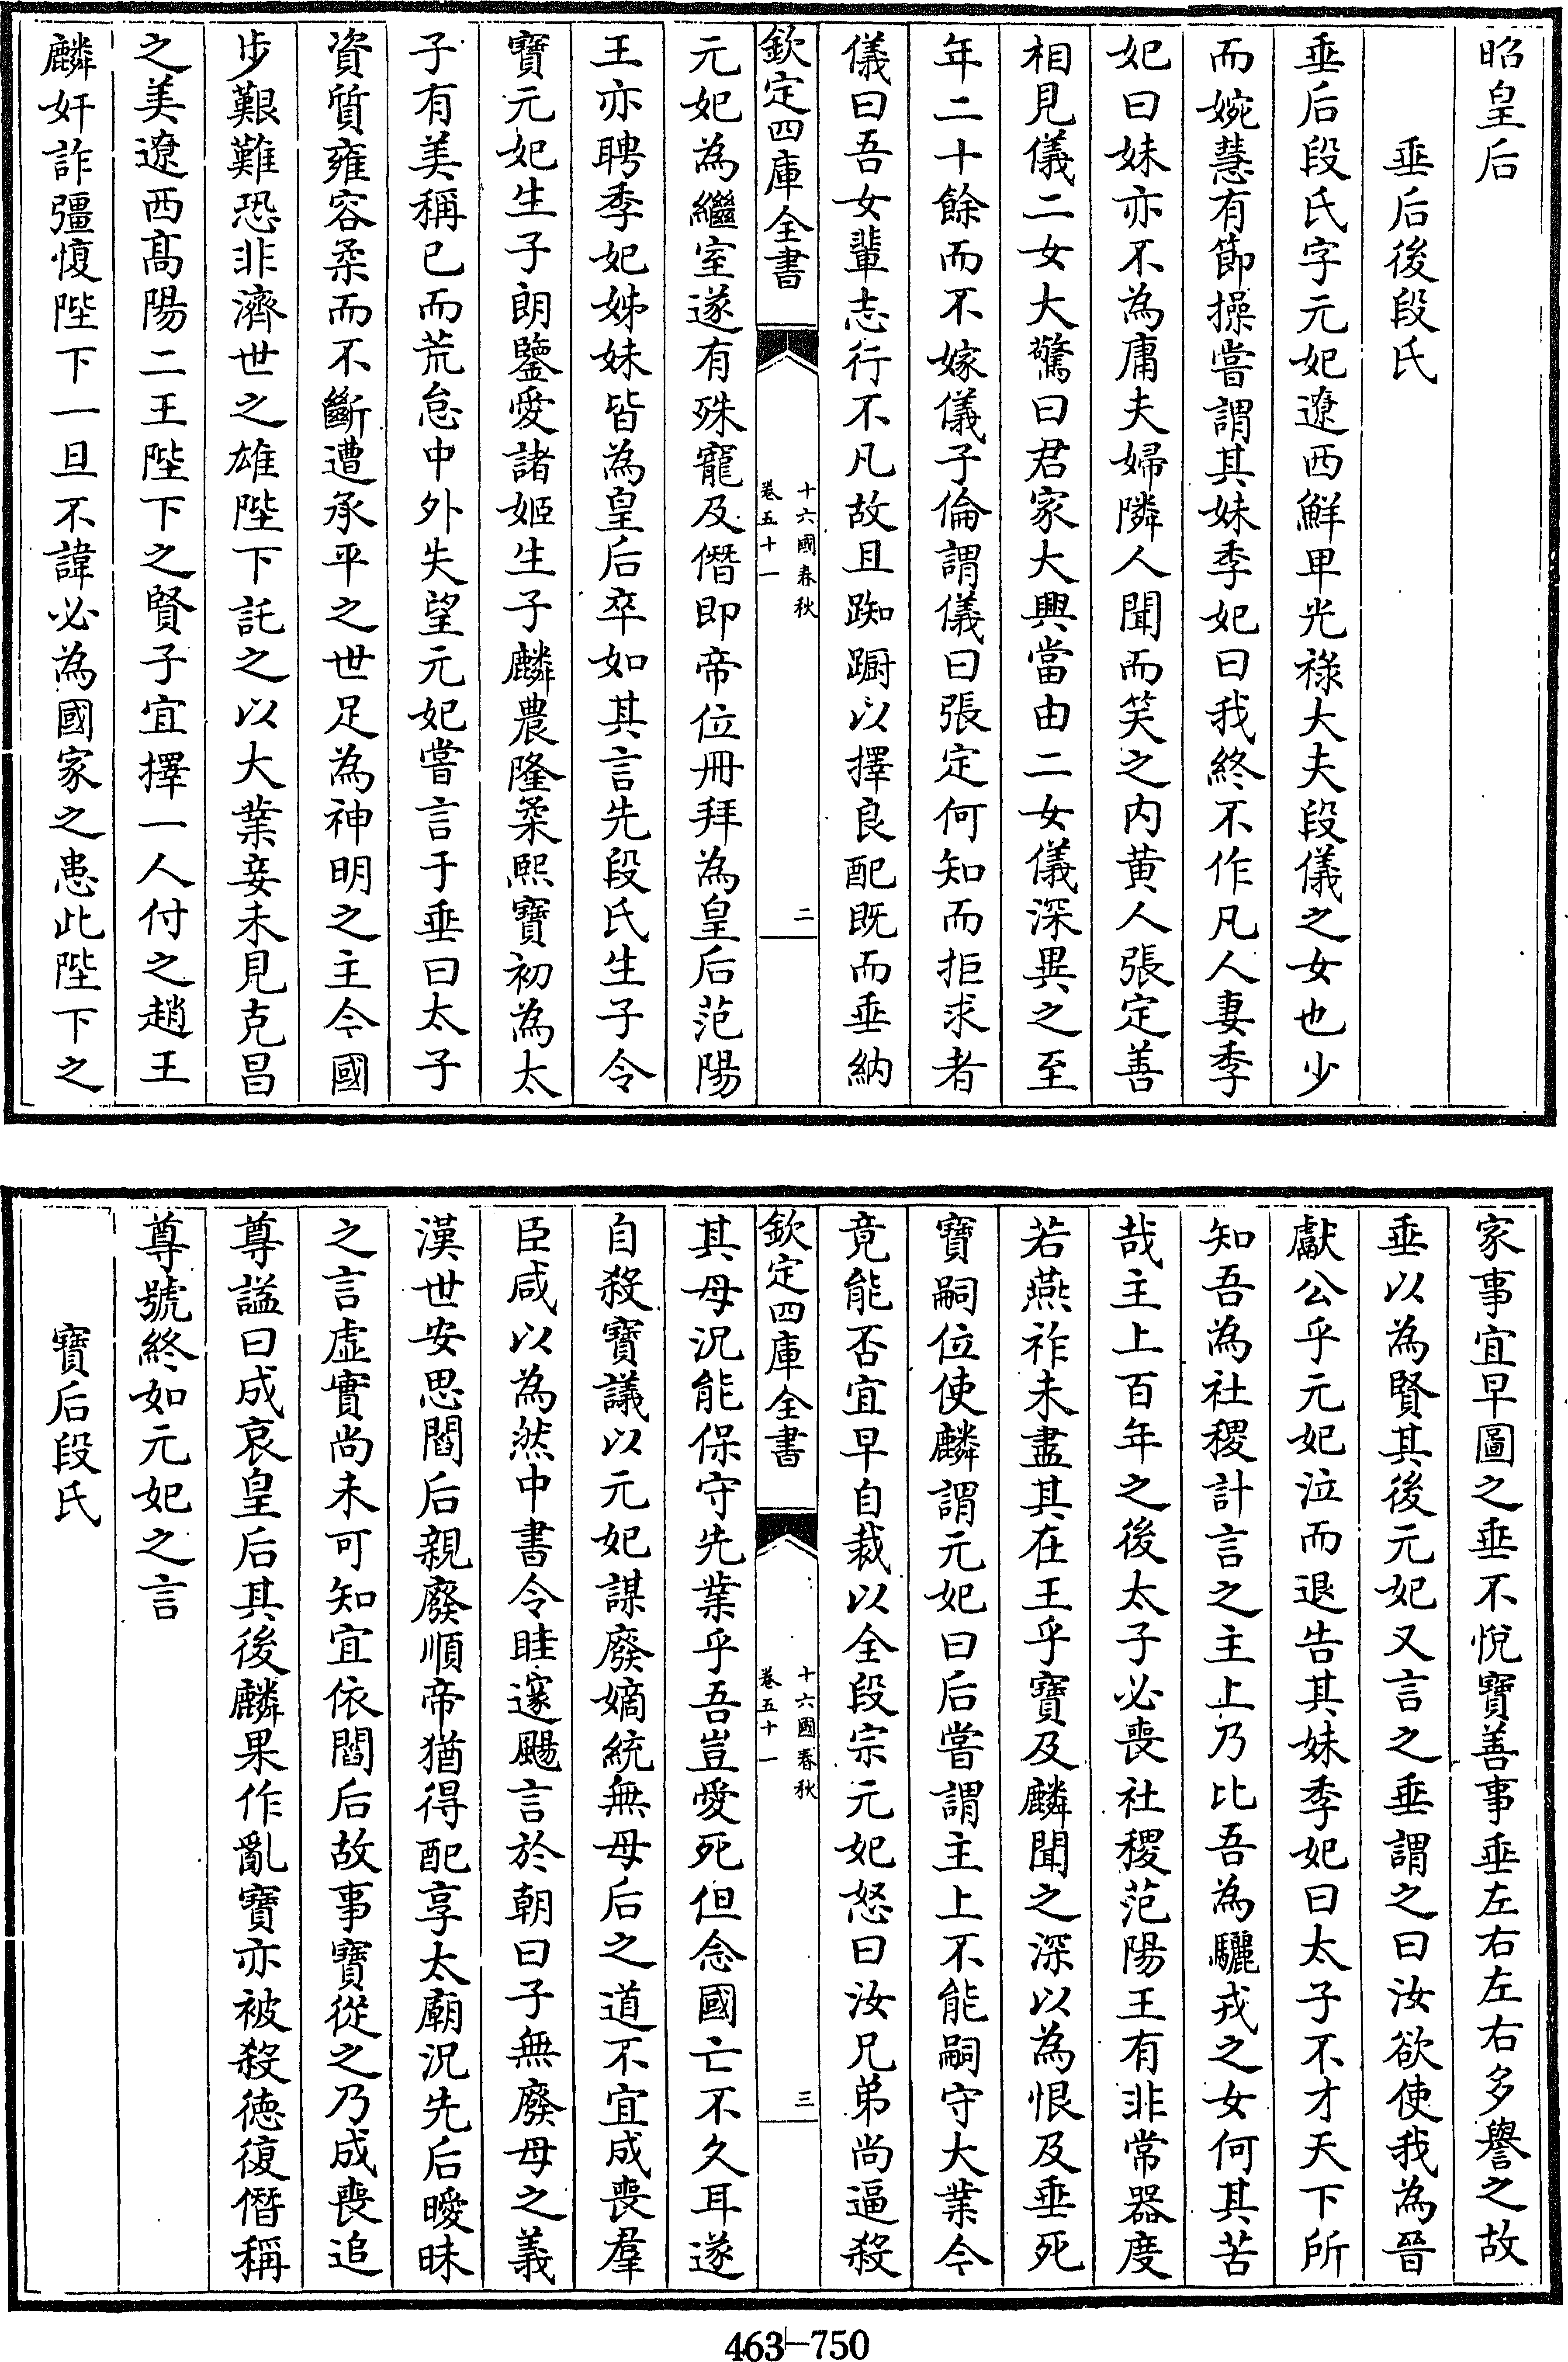 昭皇后
垂后後段氏
垂后段氏字元妃遼西鮮卑光祿大夫段儀之女也少
而婉慧有節操嘗謂其妹季妃曰我終不作凡人妻季
妃曰妹亦不為庸夫婦隣人聞而笑之内黄人張定善
相見儀二女大驚曰君家大興當由二女儀深異之至
年二十餘而不嫁儀子倫謂儀曰張定何知而拒求者
儀曰吾女輩志行不凡故且踟蹰以擇良配既而垂納
欽定四庫全書
十六國春秋
卷五十一
二
元妃為繼室遂有殊寵及僭即帝位冊拜為皇后范陽
王亦聘季妃姊妹皆為皇后卒如其言先段氏生子令
寶元妃生子朗鑒愛諸姬生子麟農隆柔熙寶初為太
子有美稱已而荒怠中外失望元妃嘗言于垂曰太子
資質雍容柔而不斷遭承平之世足為神明之主今國
步艱難恐非濟世之雄陛下託之以大業妾未見克昌
之美遼西高陽二王陛下之賢子宜擇一人付之趙王
麟奸詐彊愎陛下一旦不諱必為國家之患此陛下之
家事宜早圖之垂不悅寶善事垂左右左右多譽之故
垂以為賢其後元妃又言之垂謂之曰汝欲使我為晉
獻公乎元妃泣而退告其妹季妃曰太子不才天下所
知吾為社稷計言之主上乃比吾為驪戎之女何其苦
哉主上百年之後太子必喪社稷范陽王有非常器度
若燕祚未盡其在王乎寶及麟聞之深以為恨及垂死
寶嗣位使麟謂元妃曰后嘗謂主上不能嗣守大業今
竟能否宜早自裁以全段宗元妃怒曰汝兄弟尚逼殺
欽定四庫全書
十六國春秋
卷五十一
三
其母況能保守先業乎吾豈愛死但念國亡不久耳遂
自殺寶議以元妃謀廢嫡統無母后之道不宜成喪羣
臣咸以為然中書令眭邃颺言於朝曰子無廢母之義
漢世安思閻后親廢順帝猶得配享太廟況先后曖昧
之言虛實尚未可知宜依閻后故事寶從之乃成喪追
尊謚曰成哀皇后其後麟果作亂寶亦被殺徳復僭稱
尊號終如元妃之言
寶后段氏
463-750